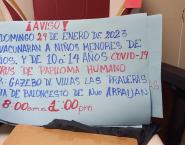 ¡AVISO!
DOMINGO 29 DE ENERO DE 2023
VACUNARAN A NIÑOS MENORES DE
ÑOS. Y DE 10 a 14 AÑOS COVID-19
RUS DE PAPILOMA HUMANO
R: GAZEBO DE VILLAS LAS PRADERAS
A DE BALONCESTO DE Nvo ARRAIJAN
8:00am a 1:00pm